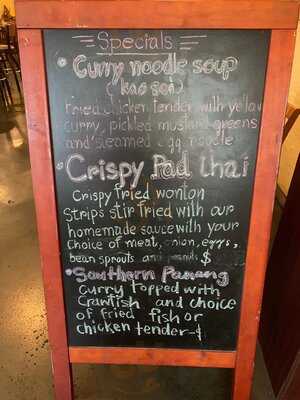 Specials
• Curry noodle soup
(kao soi)
Fried chicken tender with yellow
curry, pickled mustard greens
and steamed egg noodle
• Crispy Pad thai
Crispy fried wonton
Strips stir fried with our
homemade sauce with your
choice of meat, onion, eggs,
bean sprouts and peanuts $
• Southern Panang
curry topped with
Crawfish and choice
of fried fish or
chicken tender-$